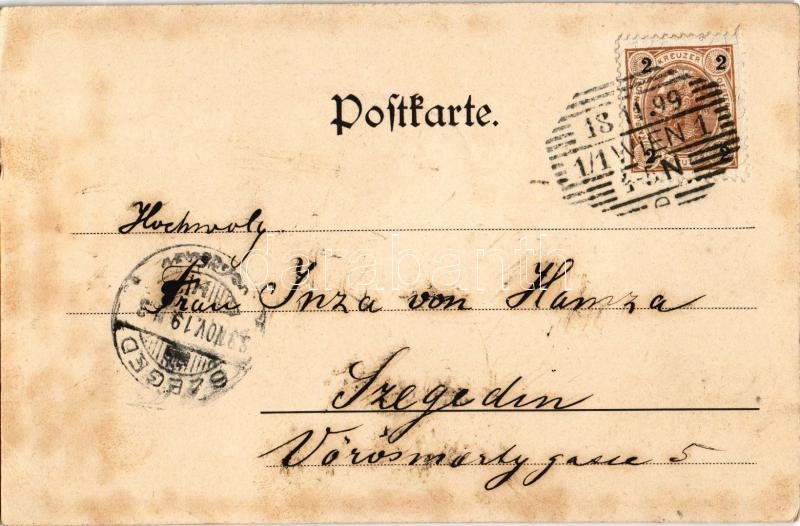 2 KREUZER 2
Postkarte.
18 11 99
1/1 WIEN 1
4-5 N
D
Hochwolg.
Frau Inza von Hamza
Szegedin
Vörösmarty gasse 5
SZEGED
99 NOV. 19
darabanth